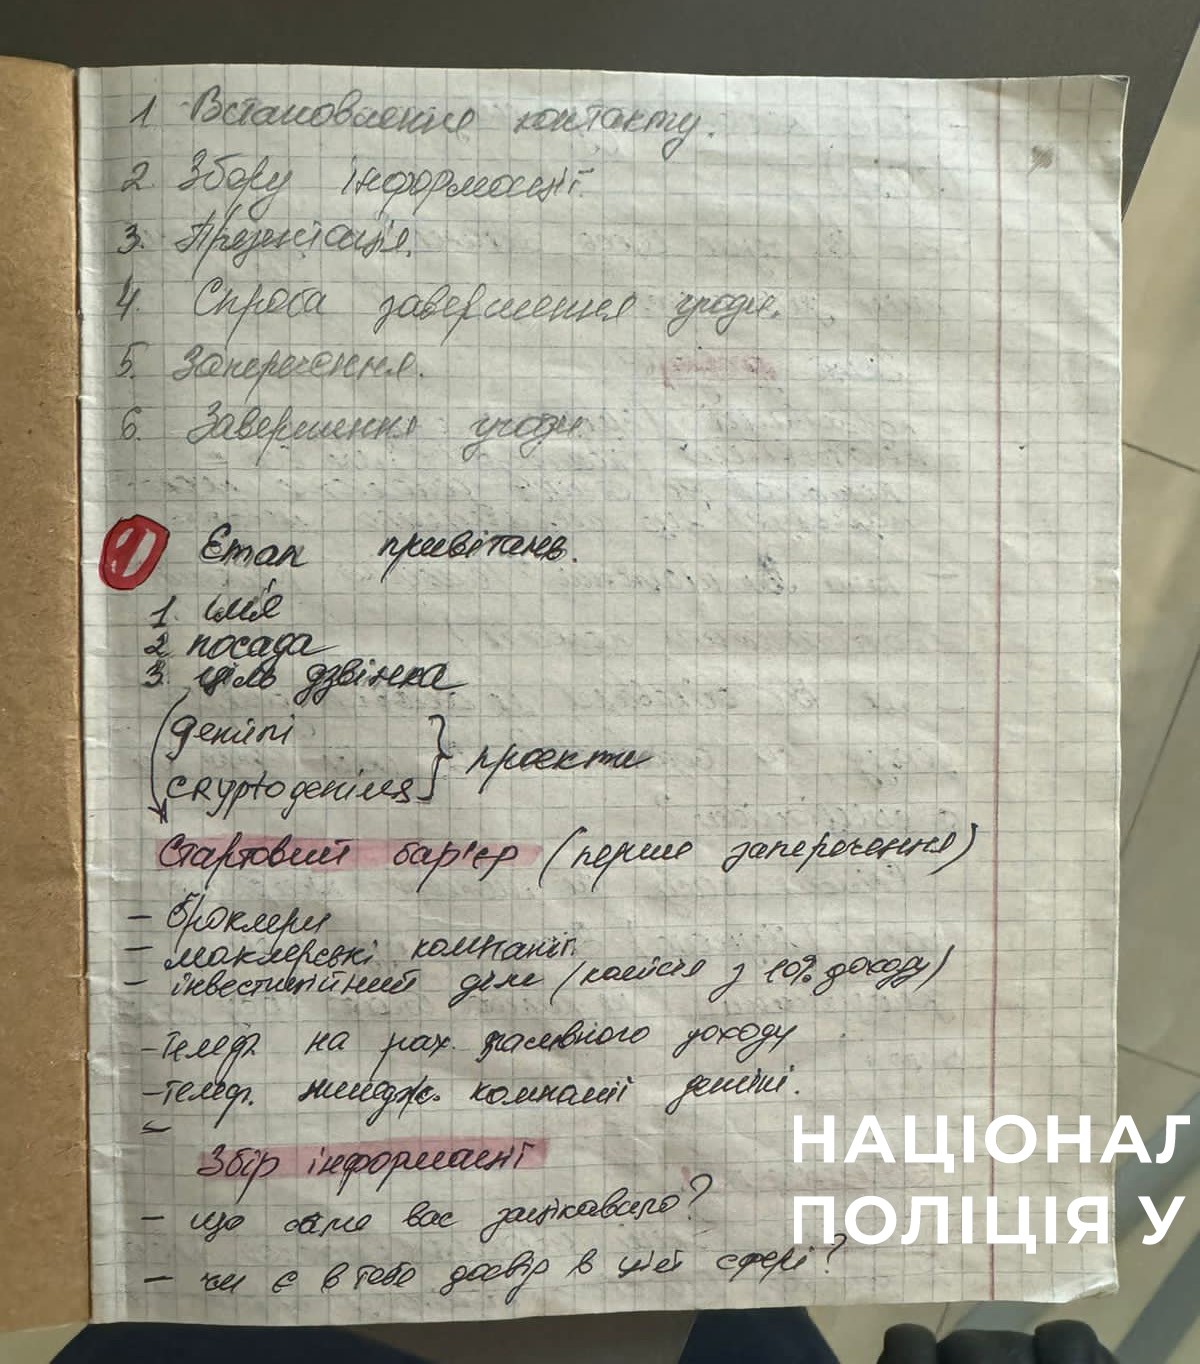 1 Встановление контакту.
2. Збору інформації.
3. Презентація.
4. Спроба завершення угоди.
5. Заперечення.
6. Завершення угоди
1 Етап привітань.
1. імя
2 посада
3. ціль дзвінка.
проекти
Стартовий бар'єр (перше заперечення)
- брокери
- маклерські компанії
- інвестиційний діли (комісія з 10% доходу)
- телеф на рах. пасивного доходу
- телеф. менедж. компанії
Збір інформації
- що саме вас зацікавило?
- чи є в тебе досвід в цій сфері?
НАЦІОНАЛ
ПОЛІЦІЯ У